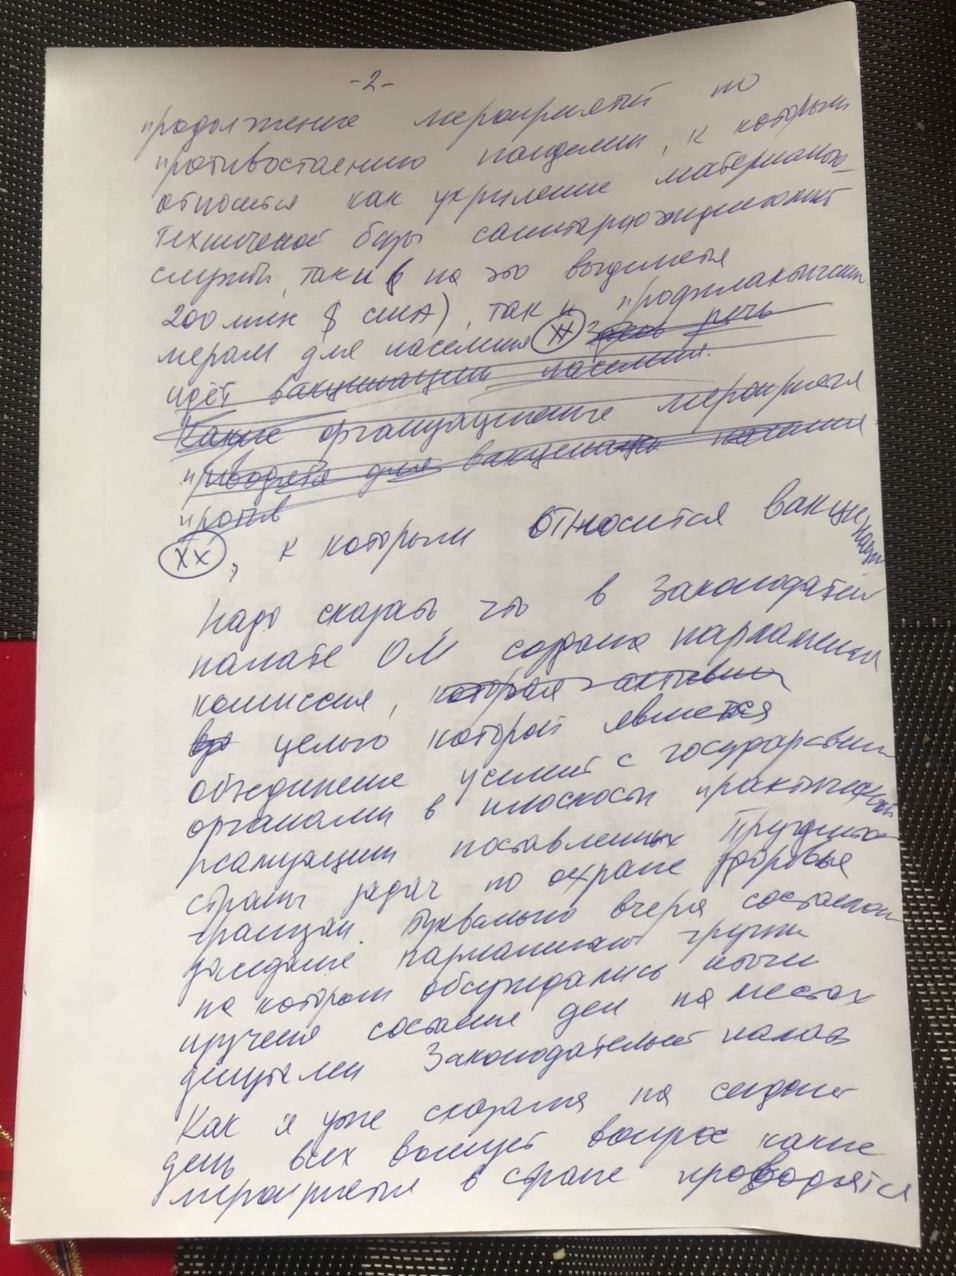 -2-
продолжение мероприятий по
противостоянию пандемии, к которым
относится как укрепление материально-
технической базы санитарноэпидемиолог
службы, так и ( на это выделяется
200 млн $ сша), так и профилактическим
мерам для населения (XX) здесь речь
идёт вакцинации населения.
Какие организационные мероприятия
проводятся для вакцинации населения
против
(XX) , к которым относится вакцинация
Надо сказать, что в Законодательн
палате ОМ создана парламентская
комиссия, которая активно
целью которой является
объединение усилий с государствен
органами в плоскости практической
реализации поставленных Президентом
страны задач по охране здоровья
граждан. Буквально вчера состоялось
заседание парламентской группы
на котором обсуждались итоги
изучения состояние дел на местах
депутатами Законодательной палаты
Как я уже сказала на сегодня
день всех волнует вопрос какие
мероприятия в стране проводятся